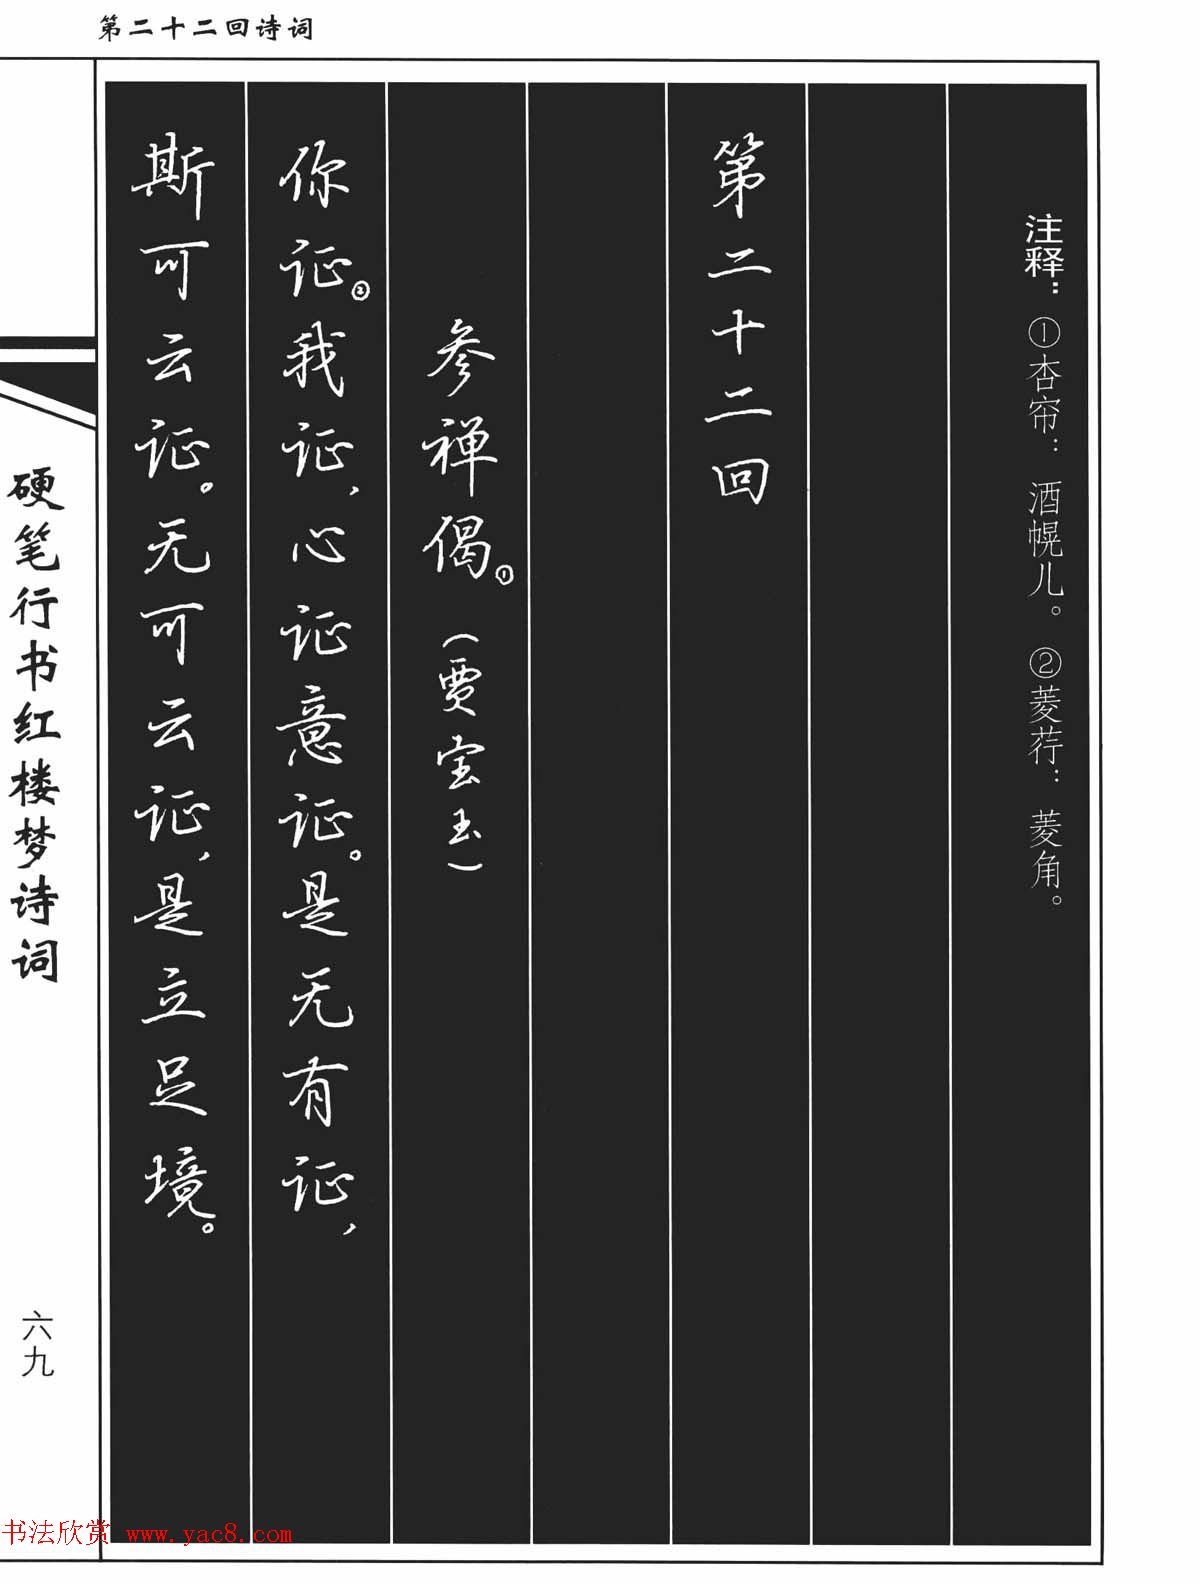 第二十二回诗词
注释：①杏帘：酒幌儿。②菱荇：菱角。
第二十二回
参禅偈。①（贾宝玉）
你证②我证，心证意证。是无有证，
斯可云证。无可云证，是立足境。
硬笔行书红楼梦诗词
六九
书法欣赏 www.yac8.com